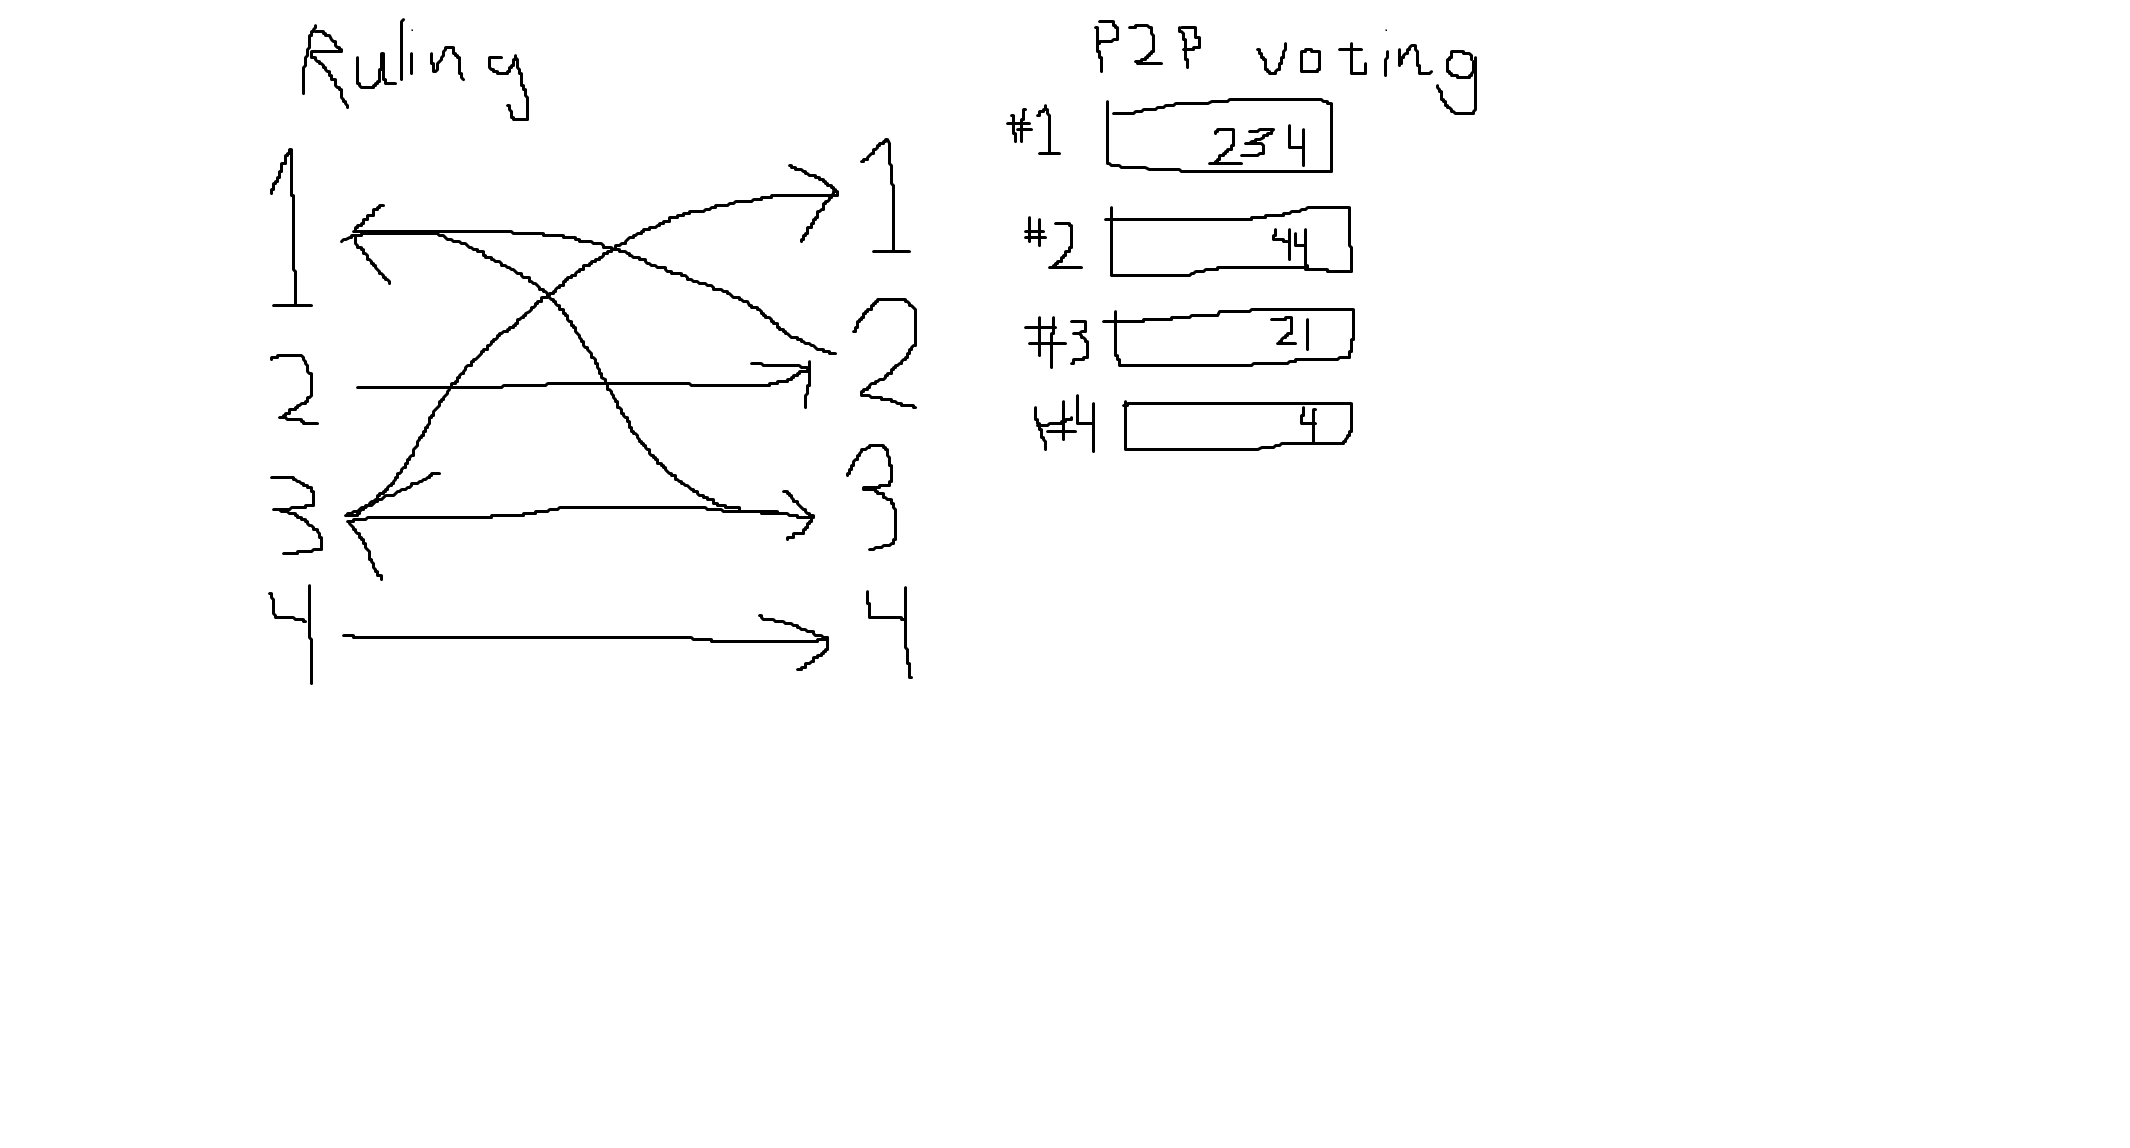 Ruling
1 1
2 2
3 3
4 4
P2P voting
#1 234
#2 44
#3 21
#4 4